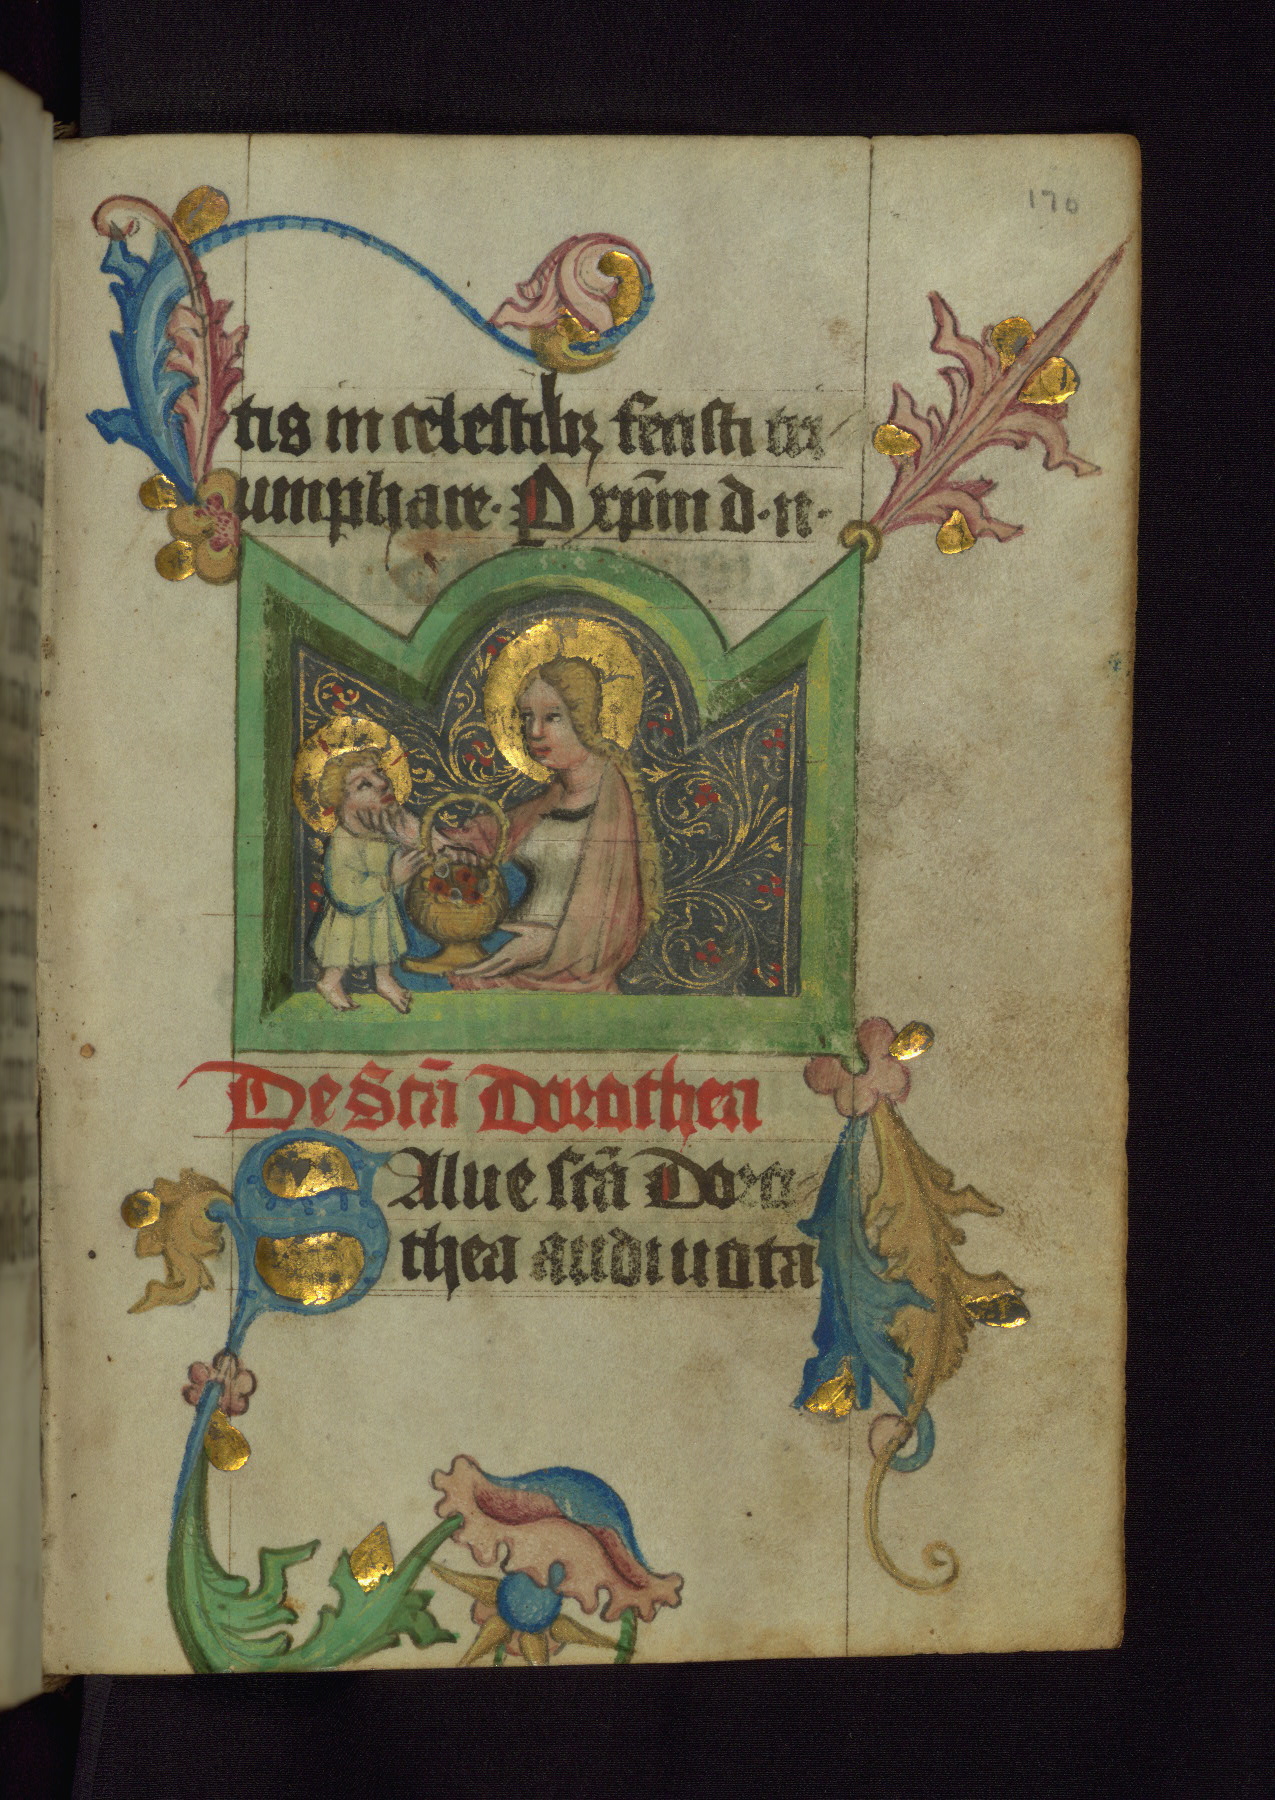 170
tis in celestibꝫ fecisti tri
umphare. P xp̄m d. n.
De Sctā Dorothea
Salue sctā Doro
thea audi uota